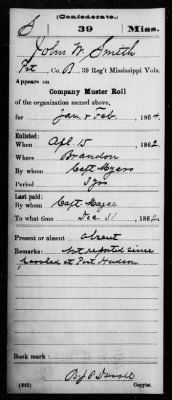 (Confederate.)
S 39 Miss.
John W. Smith
Pvt, Co. B, 39 Reg't Mississippi Vols.
Appears on
Company Muster Roll
of the organization named above,
for Jan & Feb, 1864.
Enlisted:
When Apl. 15, 1862
Where Brandon
By whom Capt Myers
Period 3 yrs
Last paid:
By whom Capt
To what time Dec. 31, 1862
Present or absent absent
Remarks: Not reported since
paroled at Port Hudson
Book mark:
(642) Copyist.